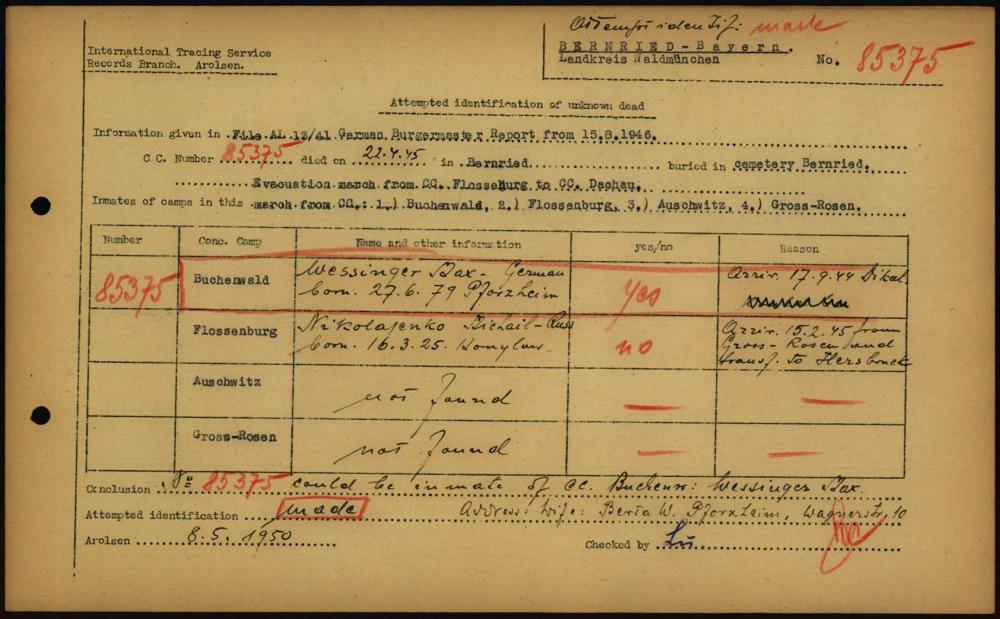 Attempt identifi: made
International Tracing Service
Records Branch. Arolsen.
BERNRIED-Bayern.
Landkreis Waldmünchen
No. 85375
Attempted identification of unknown dead
Information given in File AL 13/41 German Burgermester Report from 15.8.1946.
C.C. Number 85375 died on 22.4.45 in Bernried buried in cemetery Bernried.
Evacuation march from CC. Flossenburg to CC. Dachau.
Inmates of camps in this march from CC.: 1.) Buchenwald, 2.) Flossenburg, 3.) Auschwitz, 4.) Gross-Rosen.
Number Conc. Camp Name and other information yes/no Reason
85375 Buchenwald Wessinger Max - German born. 27.6.79 Pforzheim yes Arriv. 17.9.44 Dikal
Flossenburg Nikolajenko Michail - Russ born. 16.3.25. no Arriv. 15.2.45 from Gross-Rosen and transf. to Hersbruck
Auschwitz not found — —
Gross-Rosen not found — —
Conclusion Nr 85375 could be inmate of CC. Buchenw: Wessinger Max.
Attempted identification made Address: Wife: Berta W. Pforzheim, Wagnerstr, 10
Arolsen 8.5.1950 Checked by